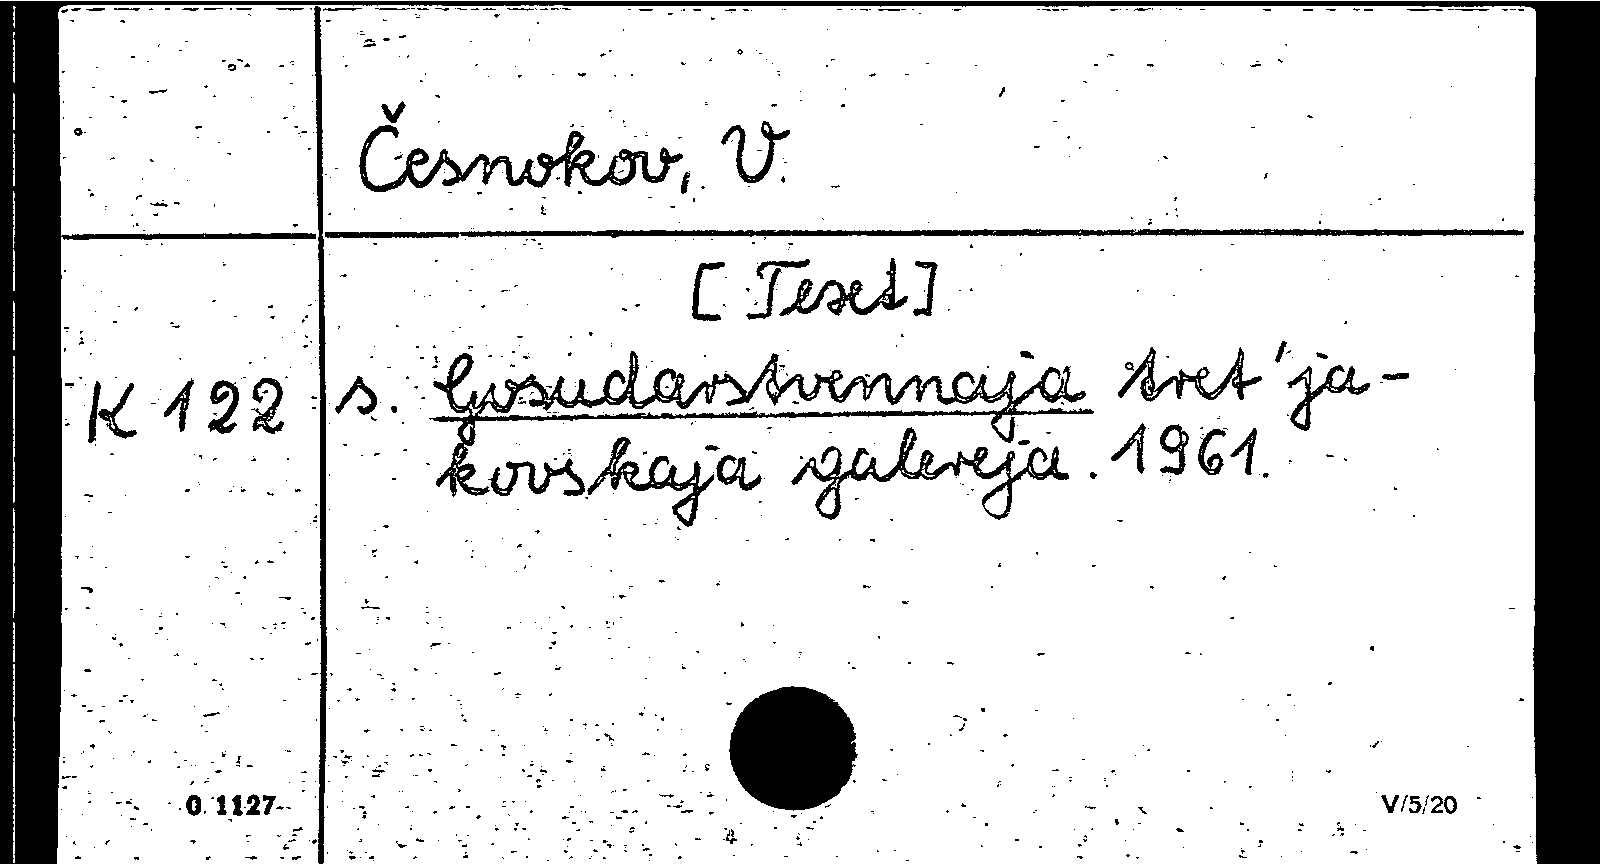 Česnokov, V.
[Teset]
K 122 s. Gosudarstvennaja tret'ja-
kovskaja galereja. 1961.
0 1127 V/5/20